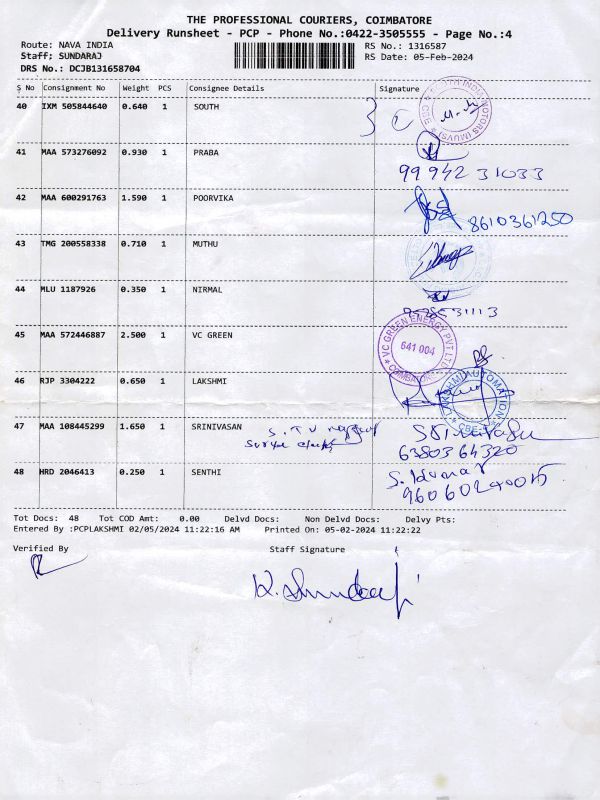 THE PROFESSIONAL COURIERS, COIMBATORE
Delivery Runsheet - PCP - Phone No.:0422-3505555 - Page No.:4
Route: NAVA INDIA RS No.: 1316587
Staff; SUNDARAJ RS Date: 05-Feb-2024
DRS No.: DCJB131658704
S No Consignment No Weight PCS Consignee Details Signature
40 IXM 505844640 0.640 1 SOUTH
41 MAA 573276092 0.930 1 PRABA
99942 31033
42 MAA 600291763 1.590 1 POORVIKA
8610361250
43 TMG 200558338 0.710 1 MUTHU
44 MLU 1187926 0.350 1 NIRMAL
45 MAA 572446887 2.500 1 VC GREEN
VC GREEN ENERGY PVT LTD
641 004
COIMBATORE
46 RJP 3304222 0.650 1 LAKSHMI
LAKSHMI AUTOMATION
CBE
47 MAA 108445299 1.650 1 SRINIVASAN
6380364320
48 HRD 2046413 0.250 1 SENTHI
S. Kumar
Tot Docs: 48 Tot COD Amt: 0.00 Delvd Docs: Non Delvd Docs: Delvy Pts:
Entered By :PCPLAKSHMI 02/05/2024 11:22:16 AM Printed On: 05-02-2024 11:22:22
Verified By Staff Signature